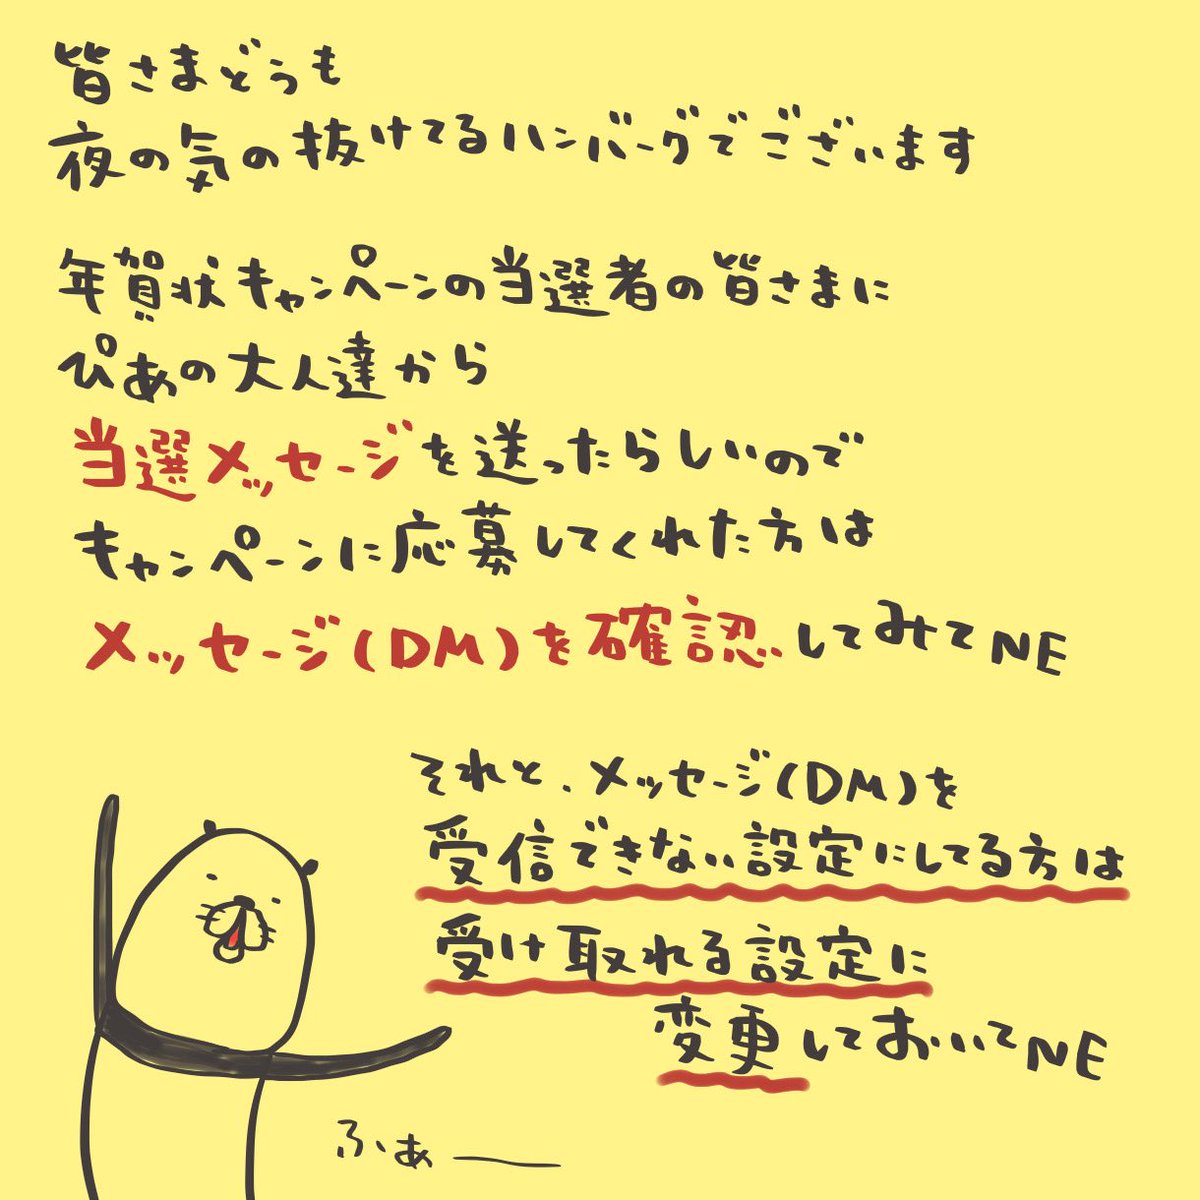 皆さまどうも
夜の気の抜けてるハンバーグでございます
年賀状キャンペーンの当選者の皆さまに
ぴあの大人達から
当選メッセージを送ったらしいので
キャンペーンに応募してくれた方は
メッセージ(DM)を確認してみてNE
それと、メッセージ(DM)を
受信できない設定にしてる方は
受け取れる設定に
変更しておいてNE
ふぁー